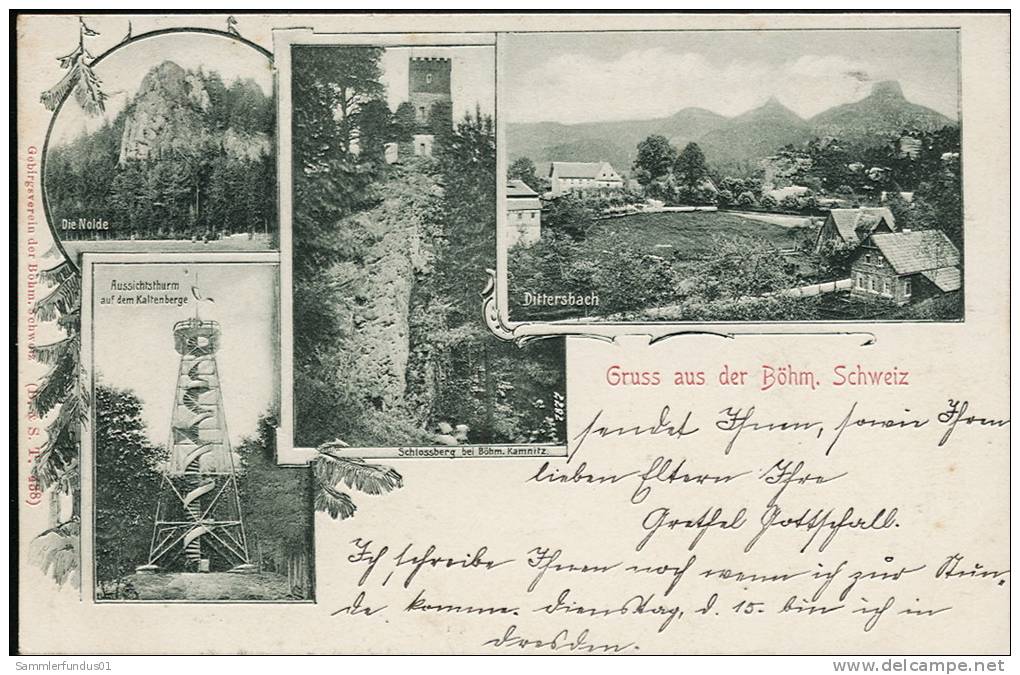 Die Nolde
Aussichtsthurm
auf dem Kaltenberge
Schlossberg bei Böhm. Kamnitz.
7787
Dittersbach
Gebirgsverein der Böhm. Schweiz
Gruss aus der Böhm. Schweiz
sendet Ihnen, sowie Ihren
lieben Eltern Ihre
Grethel Gottschall.
Ich schreibe Ihnen noch wenn ich zur Stun-
de komme. Dienstag, d. 15. bin ich in
Dresden.
Sammlerfundus01
www.delcampe.net